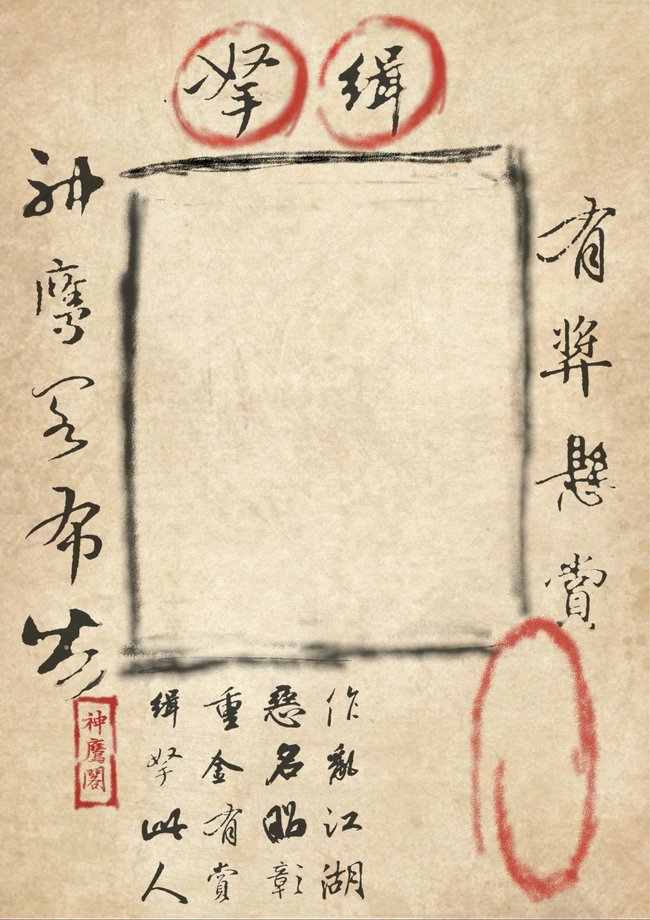 緝拏
有獎懸賞
作亂江湖
惡名昭彰
重金有賞
緝拏此人
神鷹閣布告
神鷹閣